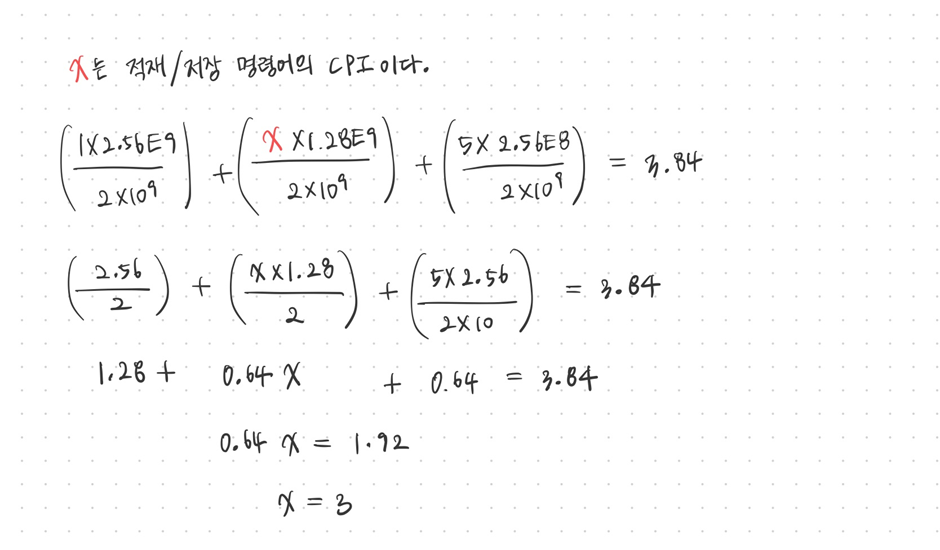 x는 적재/저장 명령어의 CPI이다.
(1×2.56E9 / 2×10⁹) + (x×1.28E9 / 2×10⁹) + (5×2.56E8 / 2×10⁹) = 3.84
(2.56 / 2) + (x×1.28 / 2) + (5×2.56 / 2×10) = 3.84
1.28 + 0.64x + 0.64 = 3.84
0.64x = 1.92
x = 3